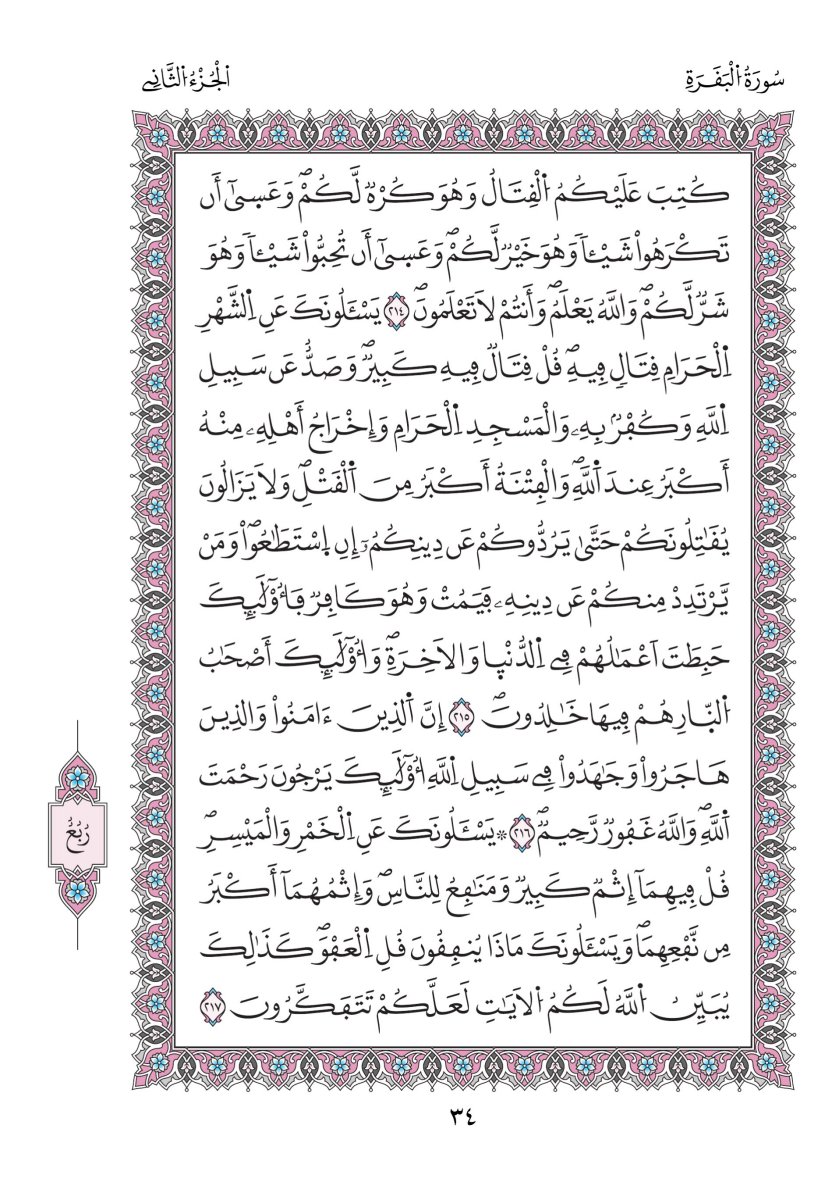 سُورَةُ الْبَقَرَةِ
الْجُزْءُ الثَّانِي
كُتِبَ عَلَيْكُمُ الْقِتَالُ وَهُوَ كُرْهٌ لَّكُمْ وَعَسَىٰ أَن
تَكْرَهُواْ شَيْـٔاً وَهُوَ خَيْرٌ لَّكُمْ وَعَسَىٰ أَن تُحِبُّواْ شَيْـٔاً وَهُوَ
شَرٌّ لَّكُمْ وَاللَّهُ يَعْلَمُ وَأَنتُمْ لَا تَعْلَمُونَ ٢١٤ يَسْـَٔلُونَكَ عَنِ الشَّهْرِ
الْحَرَامِ قِتَالٍ فِيهِ قُلْ قِتَالٌ فِيهِ كَبِيرٌ وَصَدٌّ عَن سَبِيلِ
اللَّهِ وَكُفْرٌ بِهِۦ وَالْمَسْجِدِ الْحَرَامِ وَإِخْرَاجُ أَهْلِهِۦ مِنْهُ
أَكْبَرُ عِندَ اللَّهِ وَالْفِتْنَةُ أَكْبَرُ مِنَ الْقَتْلِ وَلَا يَزَالُونَ
يُقَٰتِلُونَكُمْ حَتَّىٰ يَرُدُّوكُمْ عَن دِينِكُمُۥٓ إِنِ اِسْتَطَٰعُواْ وَمَنْ
يَّرْتَدِدْ مِنكُمْ عَن دِينِهِۦ فَيَمُتْ وَهُوَ كَافِرٌ فَأُوْلَٰٓئِكَ
حَبِطَتَ اَعْمَٰلُهُمْ فِي الدُّنْيٜا وَالَاخِرَةِ وَأُوْلَٰٓئِكَ أَصْحَٰبُ
النّ۪ارِ هُمْ فِيهَا خَٰلِدُونَ ٢١٥ إِنَّ الَّذِينَ ءَامَنُواْ وَالَّذِينَ
هَاجَرُواْ وَجَٰهَدُواْ فِي سَبِيلِ اللَّهِ أُوْلَٰٓئِكَ يَرْجُونَ رَحْمَتَ
اللَّهِ وَاللَّهُ غَفُورٌ رَّحِيمٌ ٢١٦ ۞ يَسْـَٔلُونَكَ عَنِ الْخَمْرِ وَالْمَيْسِرِ
قُلْ فِيهِمَآ إِثْمٌ كَبِيرٌ وَمَنَٰفِعُ لِلنَّاسِ وَإِثْمُهُمَآ أَكْبَرُ
مِن نَّفْعِهِمَا وَيَسْـَٔلُونَكَ مَاذَا يُنفِقُونَ قُلِ الْعَفْوَ كَذَٰلِكَ
يُبَيِّنُ اللَّهُ لَكُمُ الَايَٰتِ لَعَلَّكُمْ تَتَفَكَّرُونَ ٢١٧
رُبُعُ
٣٤